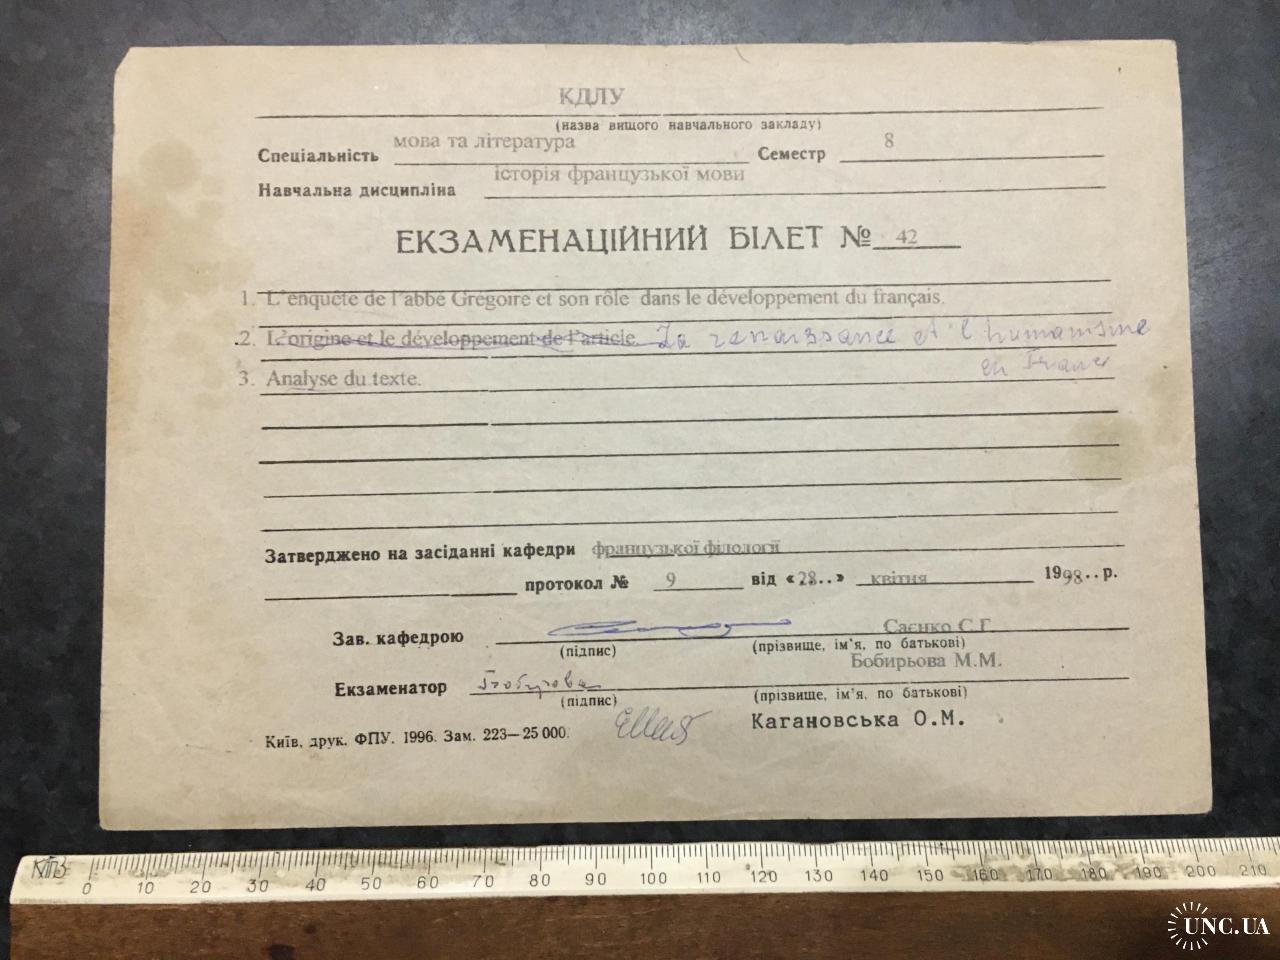 КДЛУ
(назва вищого навчального закладу)
Спеціальність мова та література Семестр 8
Навчальна дисципліна історія французької мови
ЕКЗАМЕНАЦІЙНИЙ БІЛЕТ № 42
1. L'enquête de l'abbé Grégoire et son rôle dans le développement du français.
.2. L'origine et le développement de l'article. La renaissance et l'humanisme
en France
3. Analyse du texte.
Затверджено на засіданні кафедри французької філології
протокол № 9 від «28..» квітня 1998..р.
Зав. кафедрою Саєнко С.Г.
(підпис) (прізвище, ім'я, по батькові)
Бобирьова М.М.
Екзаменатор
(підпис) (прізвище, ім'я, по батькові)
Кагановська О.М.
Київ, друк. ФПУ. 1996. Зам. 223—25 000.
0 10 20 30 40 50 60 70 80 90 100 110 120 130 140 150 160 170 180 190 200 210
UNC.UA